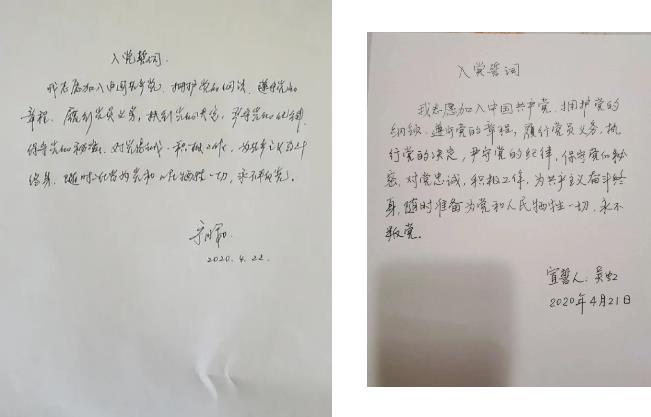 入党誓词.
我志愿加入中国共产党，拥护党的纲领，遵守党的
章程，履行党员义务，执行党的决定，严守党的纪律，
保守党的秘密，对党忠诚，积极工作，为共产主义奋斗
终身，随时准备为党和人民牺牲一切，永不叛党。
2020.4.22.
入党誓词
我志愿加入中国共产党，拥护党的
纲领，遵守党的章程，履行党员义务，执
行党的决定，严守党的纪律，保守党的秘
密，对党忠诚，积极工作，为共产主义奋斗终
身，随时准备为党和人民牺牲一切，永不
叛党。
宣誓人：吴虹
2020年4月21日